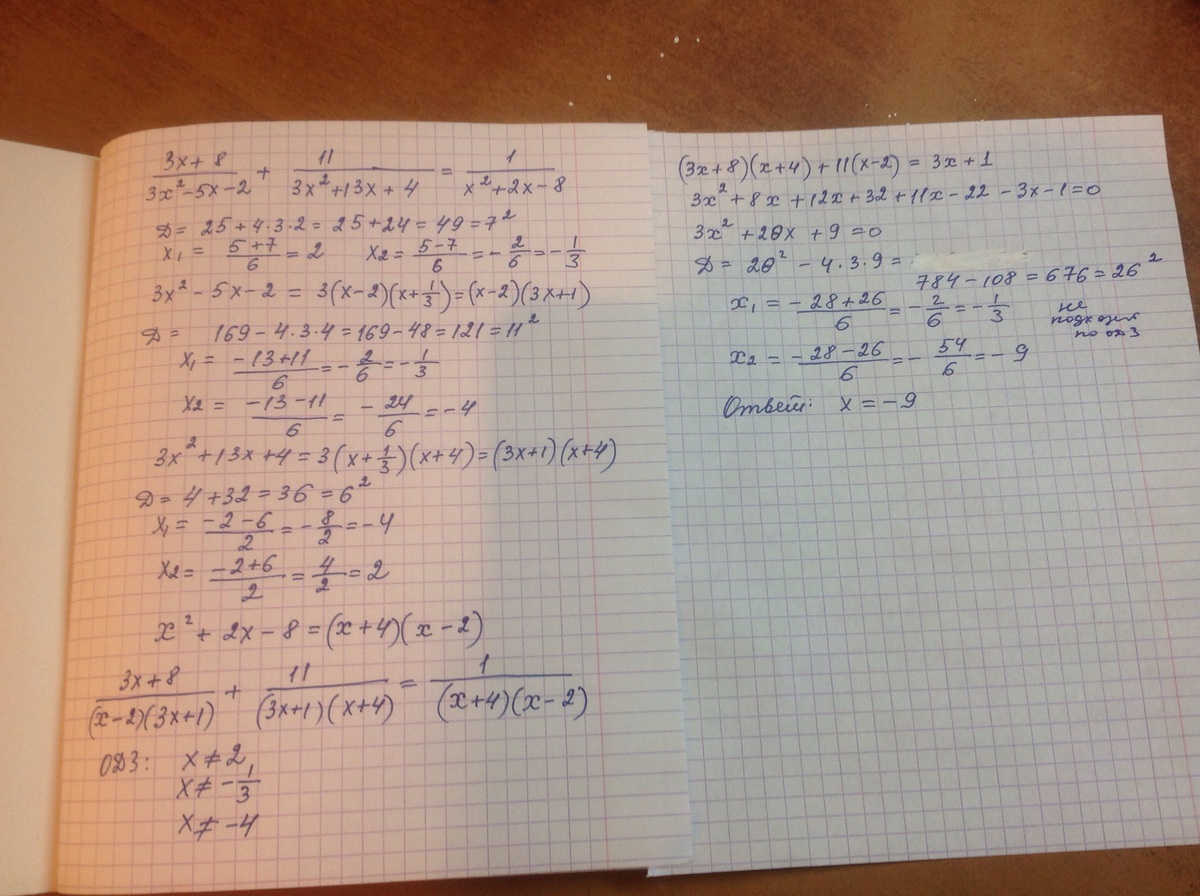 (3x+8)/(3x²-5x-2) + 11/(3x²+13x+4) = 1/(x²+2x-8)
D = 25+4·3·2 = 25+24 = 49 = 7²
x₁ = (5+7)/6 = 2 x₂ = (5-7)/6 = -2/6 = -1/3
3x²-5x-2 = 3(x-2)(x+1/3) = (x-2)(3x+1)
D = 169-4·3·4 = 169-48 = 121 = 11²
x₁ = (-13+11)/6 = -2/6 = -1/3
x₂ = (-13-11)/6 = -24/6 = -4
3x²+13x+4 = 3(x+1/3)(x+4) = (3x+1)(x+4)
D = 4+32 = 36 = 6²
x₁ = (-2-6)/2 = -8/2 = -4
x₂ = (-2+6)/2 = 4/2 = 2
x²+2x-8 = (x+4)(x-2)
(3x+8)/((x-2)(3x+1)) + 11/((3x+1)(x+4)) = 1/((x+4)(x-2))
ОДЗ: x ≠ 2
x ≠ -1/3
x ≠ -4
(3x+8)(x+4)+11(x-2) = 3x+1
3x²+8x+12x+32+11x-22-3x-1=0
3x²+28x+9=0
D = 28²-4·3·9 =
784-108 = 676 = 26²
x₁ = (-28+26)/6 = -2/6 = -1/3
не
подходит
по ОДЗ
x₂ = (-28-26)/6 = -54/6 = -9
Ответ: x = -9